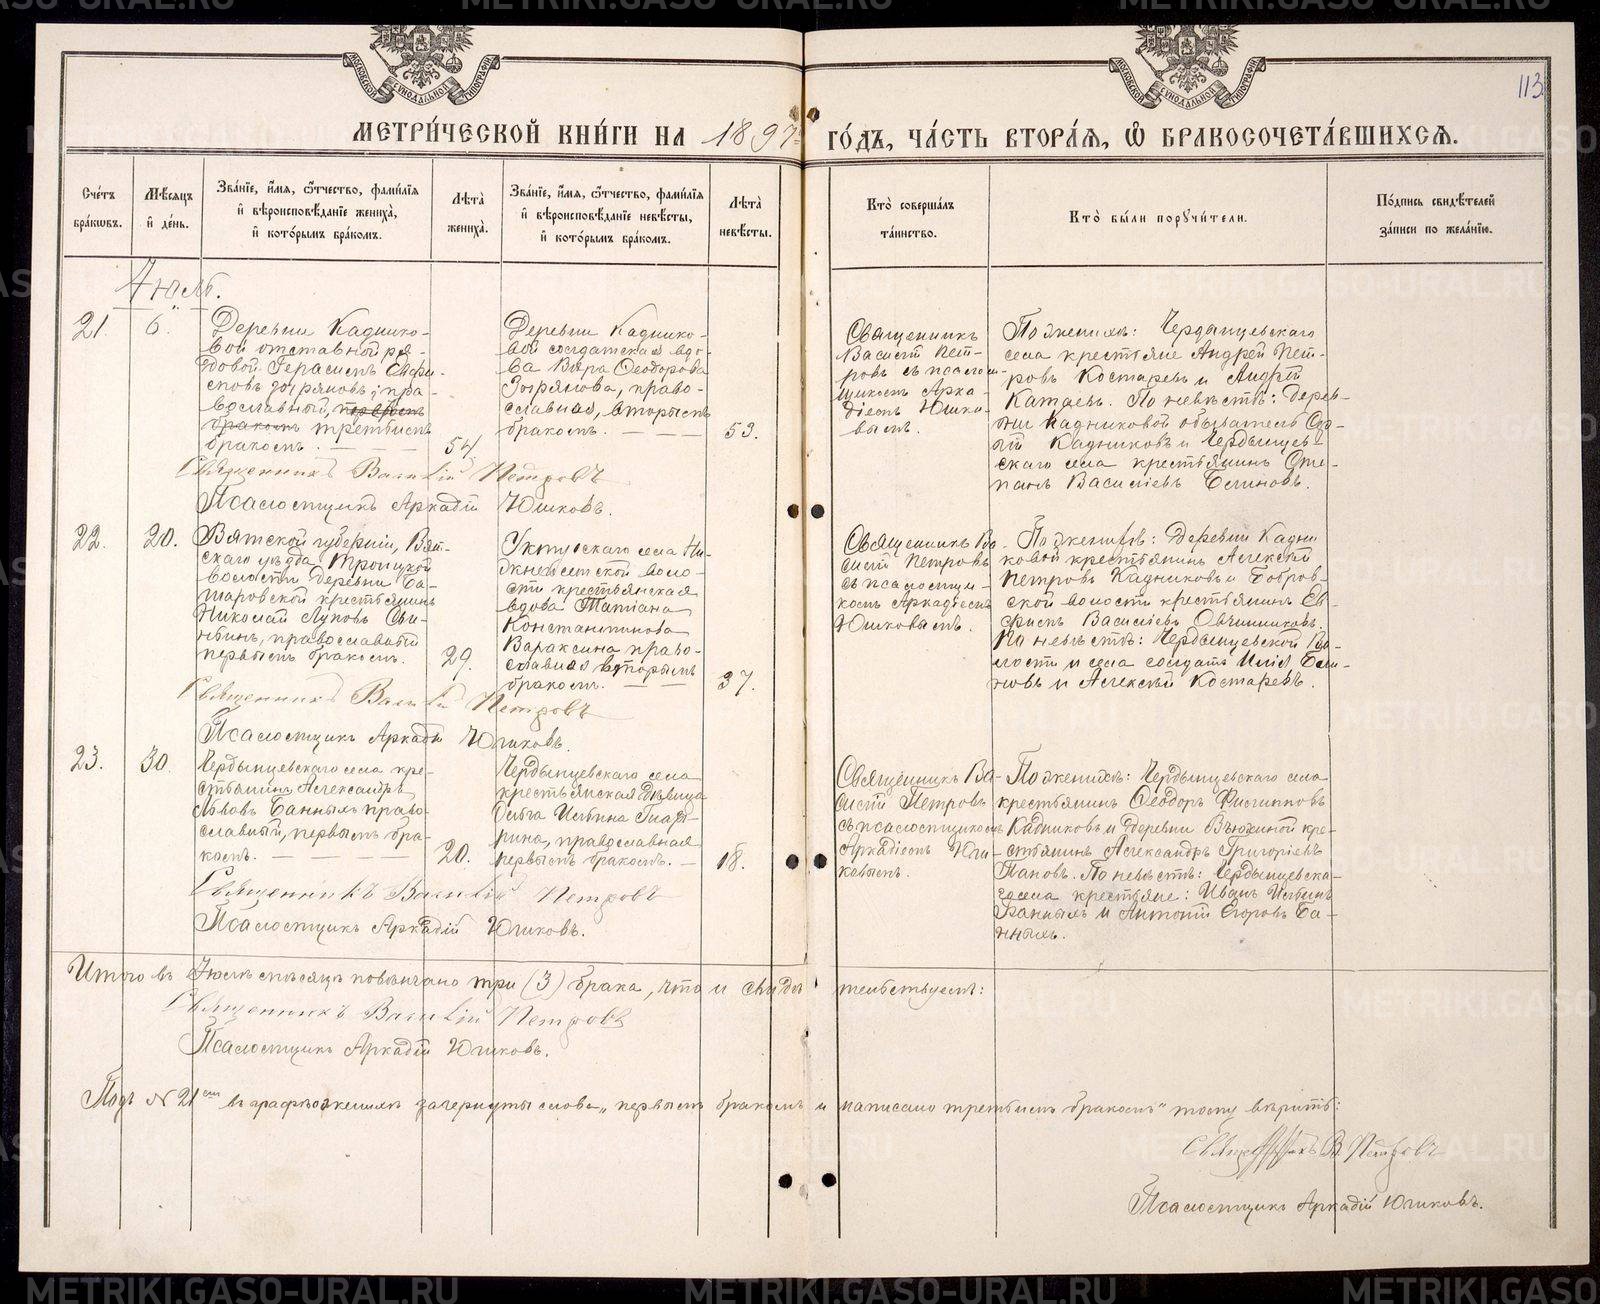 113
МЕТРИ́ЧЕСКОЙ КНИ́ГИ НА 1897 ГО́ДЪ, ЧА́СТЬ ВТОРА́Я, Ѽ БРАКОСОЧЕТА́ВШИХСЯ.
Сче́тъ бра́ковъ.
Мѣ́сяцъ и҆ де́нь.
Зва́нїе, и҆́мя, ѻ҆́тчество, фами́лїя и҆ вѣроисповѣ́данїе жениха̀, и҆ кото́рымъ бра́комъ.
Лѣ́та жениха̀.
Зва́нїе, и҆́мя, ѻ҆́тчество, фами́лїя и҆ вѣроисповѣ́данїе невѣ́сты, и҆ кото́рымъ бра́комъ.
Лѣ́та невѣ́сты.
Кто̀ соверша́лъ та́инство.
Кто̀ бы́ли поручи́тели.
По́дпись свидѣ́телей за́писи по жела́нїю.
Іюль.
21.
6.
Деревни Каднико-
вой отставной ря-
довой Герасимъ
Зыряновъ, пра-
вославный, первымъ
бракомъ третьимъ
бракомъ.
54
Деревни Каднико-
вой солдатская вдо-
ва Вѣра Ѳеодорова
Зырянова, право-
славная, вторымъ
бракомъ.
53.
Священникъ
Василій Пет-
ровъ съ псалом-
щикомъ Арка-
діемъ Юшко-
вымъ.
По женихѣ: Чердынцевскаго
села крестьяне Андрей Пет-
ровъ Костаревъ и Андрей
Катаевъ. По невѣстѣ: дерев-
ни Кадниковой
Кадниковъ и Чердынцев-
скаго села крестьянинъ Сте-
панъ Васильевъ Блиновъ.
Священникъ Василій Петровъ
Псаломщикъ Аркадій Юшковъ.
22.
20.
Вятской губерніи, Вят-
скаго уѣзда Троицкой
волости деревни Ба-
шаровской крестьянинъ
Николай Луповъ
православный
первымъ бракомъ.
29.
Уктусскаго села Ни-
жнеисетской воло-
сти крестьянская
вдова Татіана
Константинова
Вараксина право-
славная вторымъ
бракомъ.
37.
Священникъ Ва-
силій Петровъ
съ псаломщи-
комъ Аркадіемъ
Юшковымъ.
По женихѣ: деревни Кадни-
ковой крестьянинъ Алексѣй
Петровъ Кадниковъ и Бобров-
ской волости крестьянинъ Еф-
фимъ Васильевъ Овчинниковъ.
По невѣстѣ: Чердынцевской во-
лости и села солдатъ Илія Бли-
новъ и Алексѣй Костаревъ.
Священникъ Василій Петровъ
Псаломщикъ Аркадій Юшковъ.
23.
30.
Чердынцевскаго села кре-
стьянинъ Александръ
Львовъ Банныхъ право-
славный, первымъ бра-
комъ.
20.
Чердынцевскаго села
крестьянская дѣвица
Ольга Ильина
православная
первымъ бракомъ.
18.
Священникъ Ва-
силій Петровъ
съ псаломщикомъ
Аркадіемъ Юш-
ковымъ.
По женихѣ: Чердынцевскаго села
крестьянинъ Ѳеодоръ Филипповъ
Кадниковъ и деревни Вьюхиной кре-
стьянинъ Александръ Григоріевъ
Пановъ. По невѣстѣ: Чердынцевска-
го села крестьяне: Иванъ Ильинъ
Банныхъ и Антоній Егоровъ Ба-
нныхъ.
Священникъ Василій Петровъ
Псаломщикъ Аркадій Юшковъ.
Итого въ Іюлѣ мѣсяцѣ повѣнчано три (3) брака, что и свидѣтельствуемъ:
Священникъ Василій Петровъ
Псаломщикъ Аркадій Юшковъ.
Подъ № 21ᵐъ въ графѣ о женихѣ зачеркнуты слова „первымъ бракомъ и написано третьимъ бракомъ“ тому вѣрить:
Священникъ В. Петровъ
Псаломщикъ Аркадій Юшковъ.
METRIKI.GASO-URAL.RU